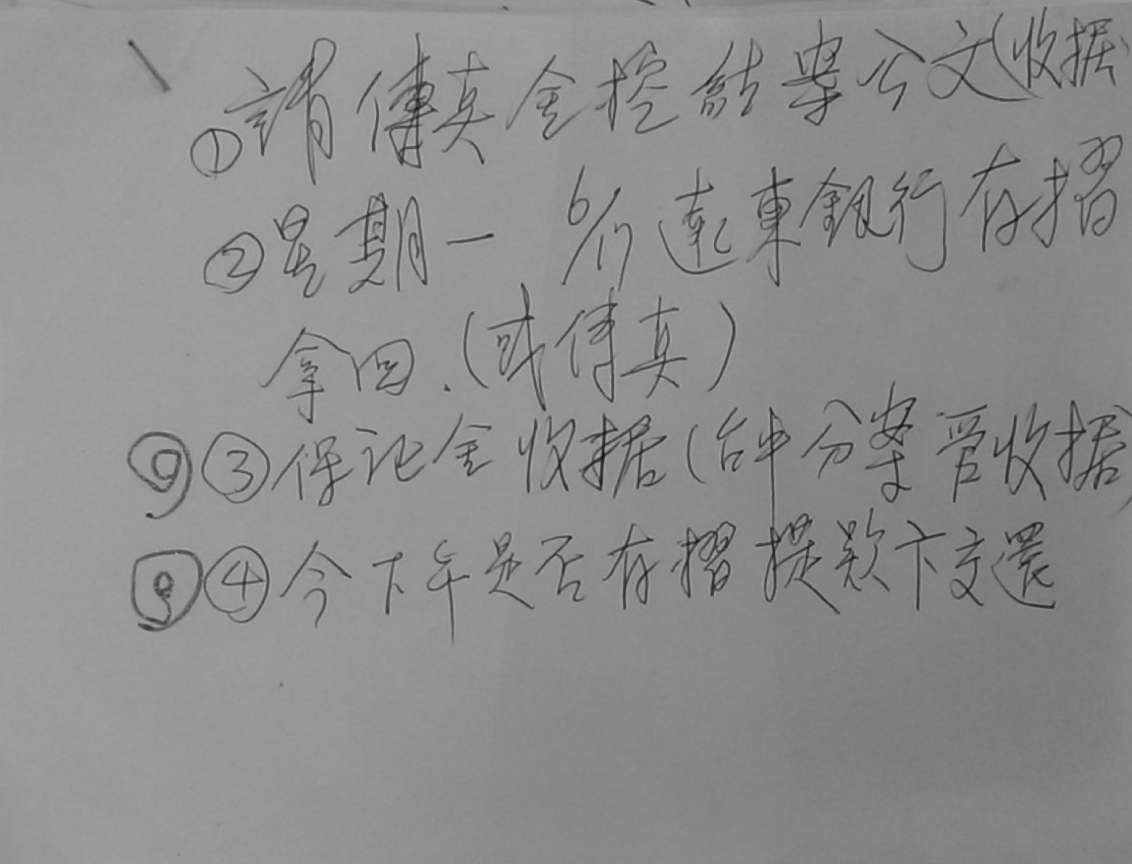 ①請傳真金控結案公文(收据)
②星期一 6/17遠東銀行存摺
拿回.(或傳真)
③保证金收据(台中分案管收据)
④今下午是否存摺提款卡交還